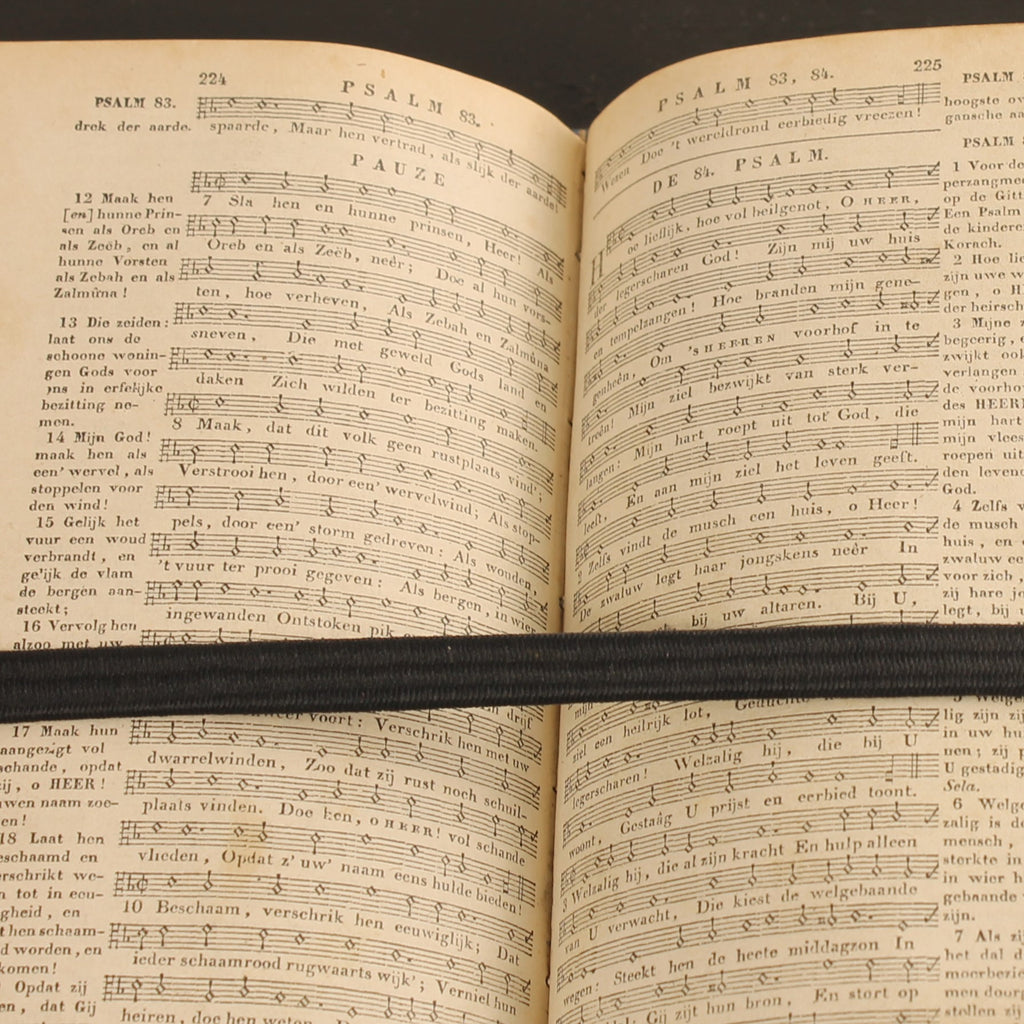 224
PSALM 83.
PSALM 83.
drek der aarde.
spaarde, Maar hen vertrad, als slijk der aarde!
PAUZE
12 Maak hen
[en] hunne Prin-
sen als Oreb en
als Zeëb, en al
hunne Vorsten
als Zebah en als
Zalmûna!
13 Die zeiden:
laat ons de
schoone wonin-
gen Gods voor
ons in erfelijke
bezitting ne-
men.
14 Mijn God!
maak hen als
een' wervel, als
stoppelen voor
den wind!
15 Gelijk het
vuur een woud
verbrandt, en
gelijk de vlam
de bergen aan-
steekt;
16 Vervolg hen
alzoo met uw
17 Maak hun
aangezigt vol
schande, opdat
zij, o HEER!
uwen naam zoe-
en!
18 Laat hen
eschaamd en
erschrikt we-
n tot in eeu-
gheid, en
t hen schaam-
d worden, en
komen!
Opdat zij
en, dat Gij
7 Sla hen en hunne prinsen, Heer! Als
Oreb en als Zeëb, neêr; Doe al hun vors-
ten, hoe verheven, Als Zebah en Zalmûna
sneven, Die met geweld Gods land en
daken Zich wilden ter bezitting maken.
8 Maak, dat dit volk geen rustplaats vind';
Verstrooi hen, door een' wervelwind; Als stop-
pels, door een' storm gedreven: Als wouden,
't vuur ter prooi gegeven: Als bergen, in wier
ingewanden Ontstoken pik
voort: Verschrik hen met uw
dwarrelwinden, Zoo dat zij rust noch schuil-
plaats vinden. Doe hen, o HEER! vol schande
vlieden, Opdat z' uw' naam eens hulde bieden!
10 Beschaam, verschrik hen eeuwiglijk; Dat
ieder schaamrood rugwaarts wijk'; Verniel hun
heiren, doe hen weten, Dat
225
PSALM 83, 84.
Wezen Doe 't wereldrond eerbiedig vreezen!
DE 84. PSALM.
Hoe lieflijk, hoe vol heilgenot, O HEER,
der legerscharen God! Zijn mij uw huis
en tempelzangen! Hoe branden mijn gene-
genheên, Om 's HEEREN voorhof in te
treên! Mijn ziel bezwijkt van sterk ver-
langen: Mijn hart roept uit tot God, die
leeft, En aan mijn ziel het leven geeft.
2 Zelfs vindt de musch een huis, o Heer!
De zwaluw legt haar jongskens neêr In
bij uw altaren. Bij U,
ziel een heilrijk lot,
legerscharen! Welzalig hij, die bij U
woont, Gestaâg U prijst en eerbied toont.
3 Welzalig hij, die al zijn kracht En hulp alleen
van U verwacht, Die kiest de welgebaande
wegen: Steekt hen de heete middagzon In
Gij zijt hun bron, En stort op
PSALM
hoogste ov
gansche aa
PSALM 8
1 Voor de
perzangmee
op de Gitt
Een Psalm
de kinderen
Korach.
2 Hoe lie
zijn uwe w
gen, o H
der heirsch
3 Mijne z
begeerig, e
zwijkt ook
verlangen
de voorho
des HEERE
mijn hart
mijn vlees
roepen uit
den levend
God.
4 Zelfs v
de musch
huis, en
zwaluw ee
voor zich,
zij hare jo
legt, bij u
5 Welge
lig zijn zij
in uw hu
nen; zij p
U gestadig
Sela.
6 Welge
zalig is de
mensch,
sterkte in
in wier h
gebaande
zijn.
7 Als zij
het dal d
moerbezie
men doorg
stellen zij